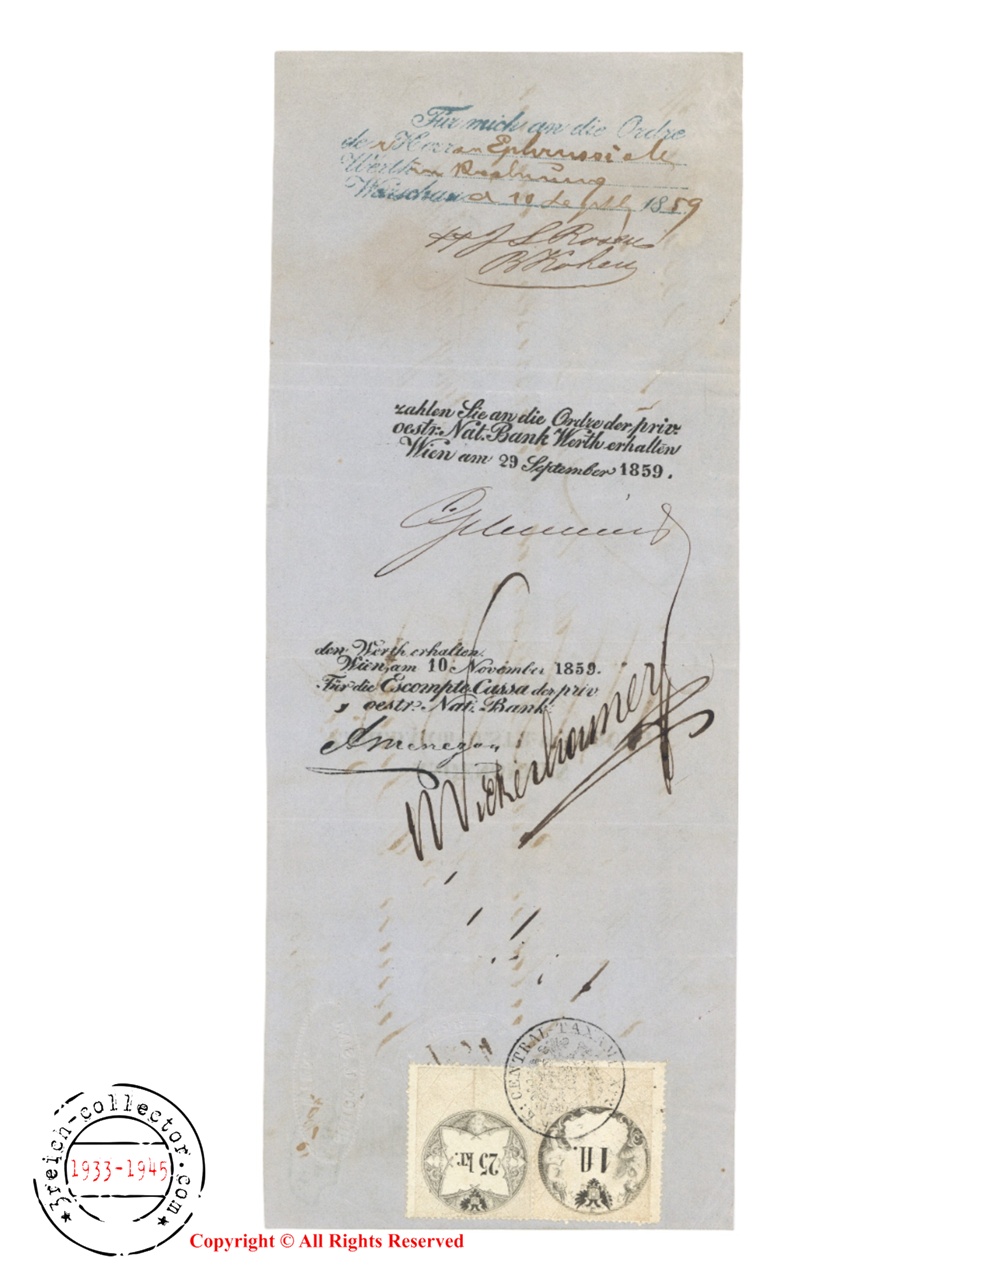 Für mich an die Ordre
der Herren Ephrussi & Co
Werth in Rechnung
Warschau d 1859
J S Rosen
zahlen Sie an die Ordre der priv.
oestr. Nat. Bank Werth erhalten
Wien am 29 September 1859.
den Werth erhalten.
Wien, am 10. November 1859.
Für die Escompte Cassa der priv
oestr. Nat. Bank.
CENTRAL-TAXAMT
25 kr.
1 fl.
3reich-collector.com
1933-1945
Copyright © All Rights Reserved